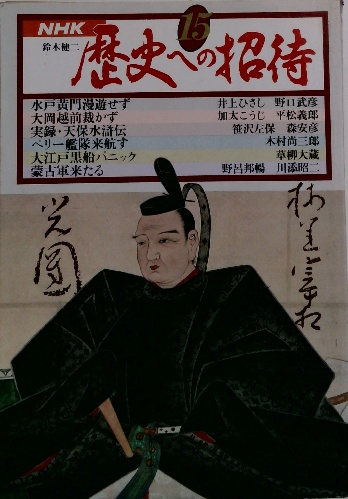 NHK
15
鈴木健二
歴史への招待
水戸黄門漫遊せず 井上ひさし 野口武彦
大岡越前裁かず 加太こうじ 平松義郎
実録・天保水滸伝 笹沢左保 森安彦
ペリー艦隊来航す 木村尚三郎
大江戸黒船パニック 草柳大蔵
蒙古軍来たる 野呂邦暢 川添昭二
光圀